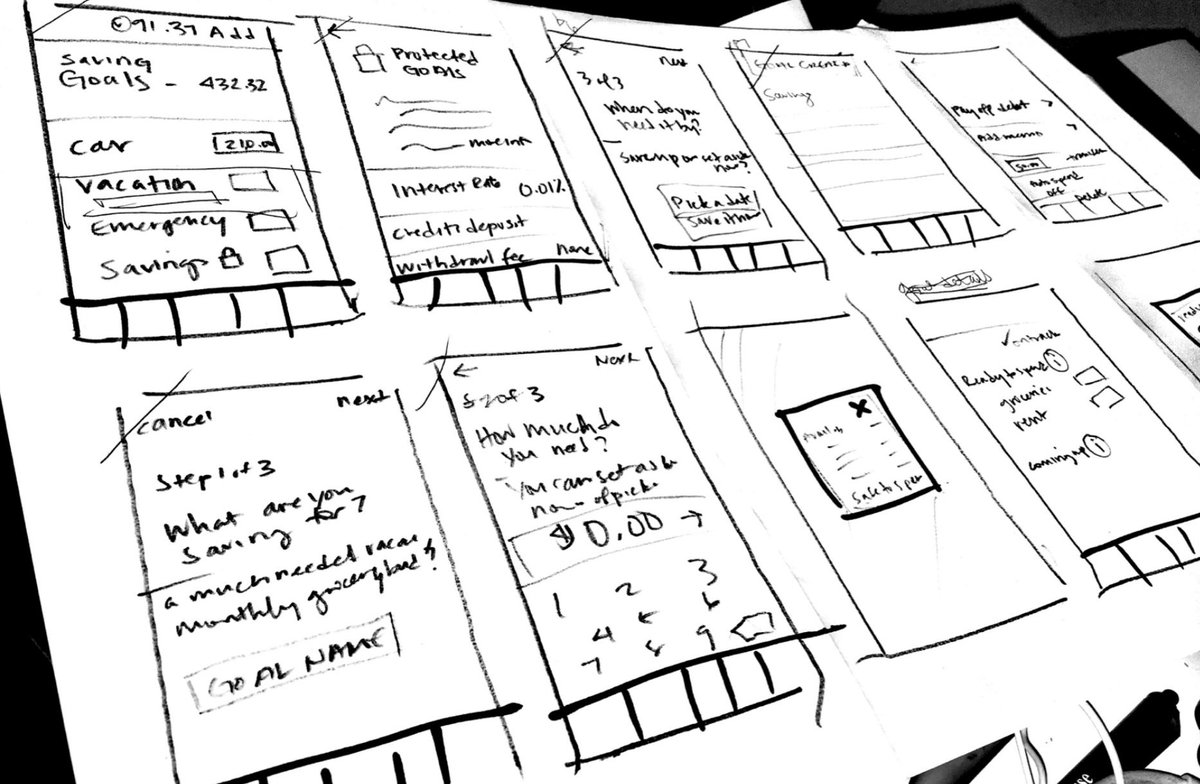 91.37 Add
Saving
Goals - 432.32
car 210.00
vacation
Emergency
Savings
Protected
GOALS
more info
Interest Rate 0.01%
credit deposit
withdrawl fee none
next
3 of 3
When do you
need it by?
now?
Pick a date
Save
GOAL
Savings
Pay off debt >
Add memo >
50.00 transfer
Auto spend
OFF
Delete
cancel next
Step 1 of 3
What are you
saving for?
a much needed vacay
monthly grocery
GOAL NAME
← Next
2 of 3
How much do
you need?
You can set as
now
$0.00 →
1 2 3
4 5 6
7 8 9
X
Safe to spen
goal details
Ready to spend i
groceries
rent
coming up i